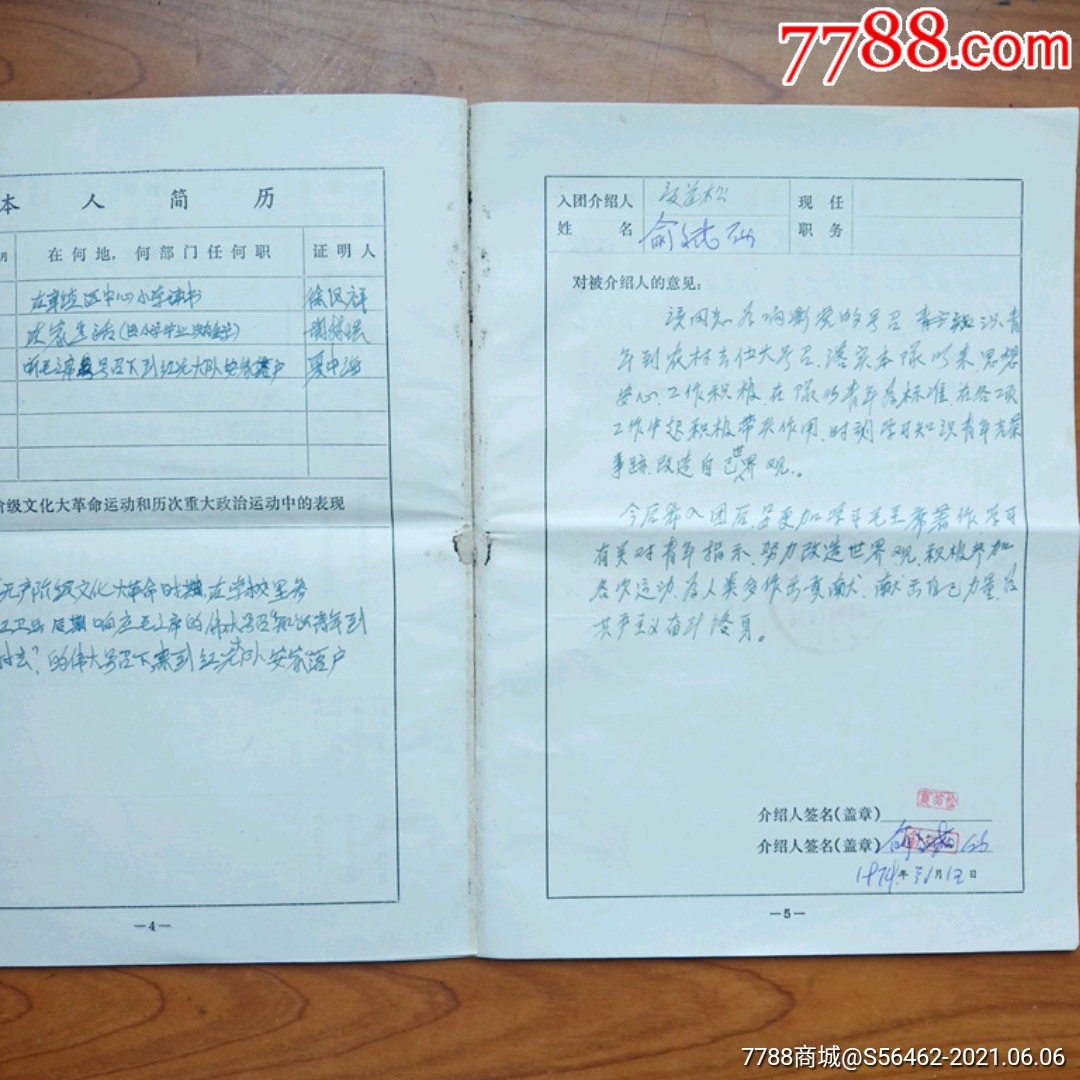 7788.com
本 人 简 历
期
在何地，何部门任何职
证明人
在 区中心小学读书
在家生活
听毛主席号召下到红光大队安家落户
阶级文化大革命运动和历次重大政治运动中的表现
无产阶级文化大革命时期，在学校里务
红卫兵后期响应毛主席的伟大号召知识青年到
村去"的伟大号召下来到红光队安家落户
—4—
入团介绍人
姓 名
现 任
职 务
对被介绍人的意见：
该同志 响应党的号召 知识青
年到农村去伟大号召，落实本队以来思想
安心工作积极，在队以青年为标准，在各项
工作中起积极带头作用，时刻学习知识青年光荣
事迹，改造自己世界观。
今后希入团后，要更加学习毛主席著作，学习
有关对青年指示，努力改造世界观，积极参加
各次运动，为人类多作出贡献，献出自己力量，为
共产主义奋斗终身。
介绍人签名（盖章）
介绍人签名（盖章）
1974年 月12日
—5—
7788商城@S56462-2021.06.06